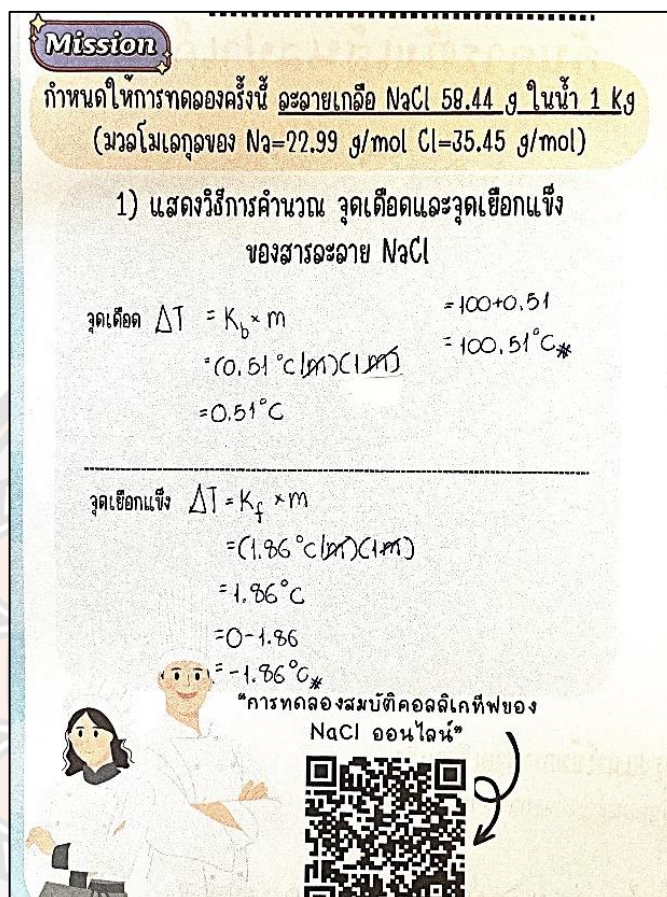 Mission
กำหนดให้การทดลองครั้งนี้ ละลายเกลือ NaCl 58.44 g ในน้ำ 1 Kg
(มวลโมเลกุลของ Na=22.99 g/mol Cl=35.45 g/mol)
1) แสดงวิธีการคำนวณ จุดเดือดและจุดเยือกแข็ง
ของสารละลาย NaCl
จุดเดือด ΔT = K_b × m
=(0.51 °C/m)(1m)
=0.51°C
=100+0.51
=100.51°C*
จุดเยือกแข็ง ΔT = K_f × m
=(1.86 °C/m)(1m)
=1.86°C
=0-1.86
=-1.86°C*
"การทดลองสมบัติคอลลิเกทีฟของ
NaCl ออนไลน์"